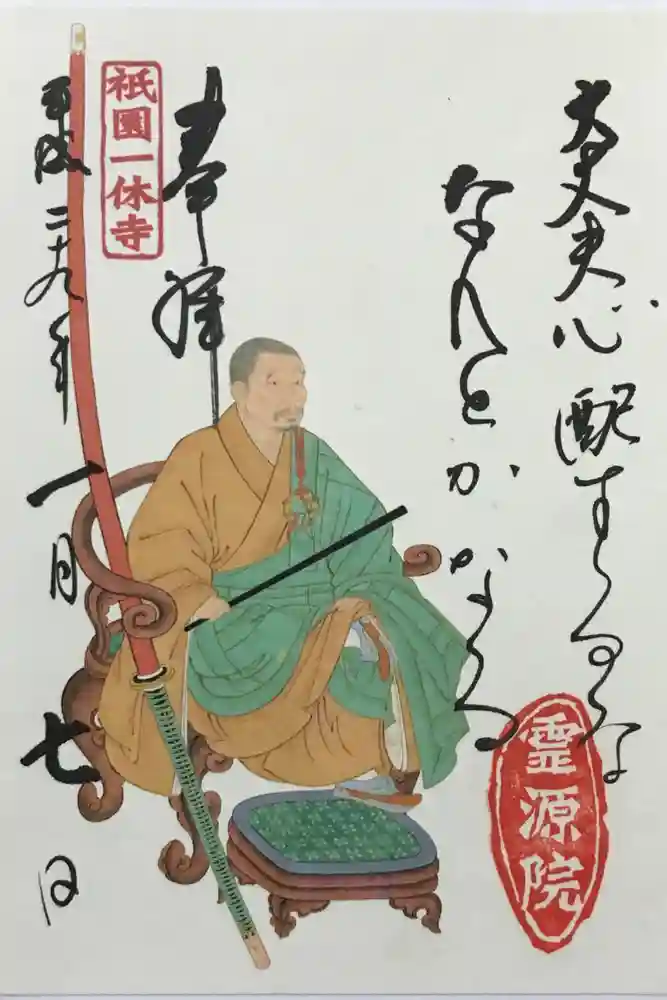 大丈夫心配するな
なんとかなる
霊源院
奉拝
祇園一休寺
平成二十九年一月七日